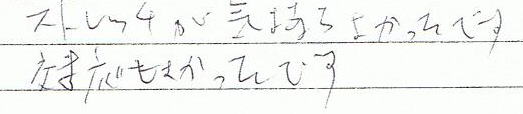 ストレッチが気持ちよかったです
対応もよかったです